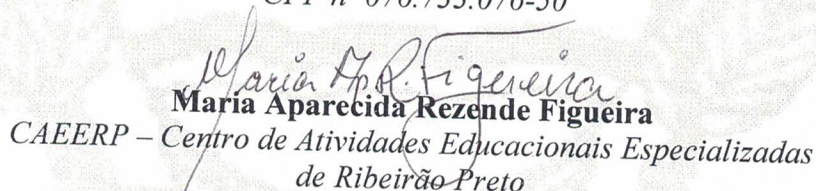 Maria Ap. R. Figueira
Maria Aparecida Rezende Figueira
CAEERP – Centro de Atividades Educacionais Especializadas
de Ribeirão Preto